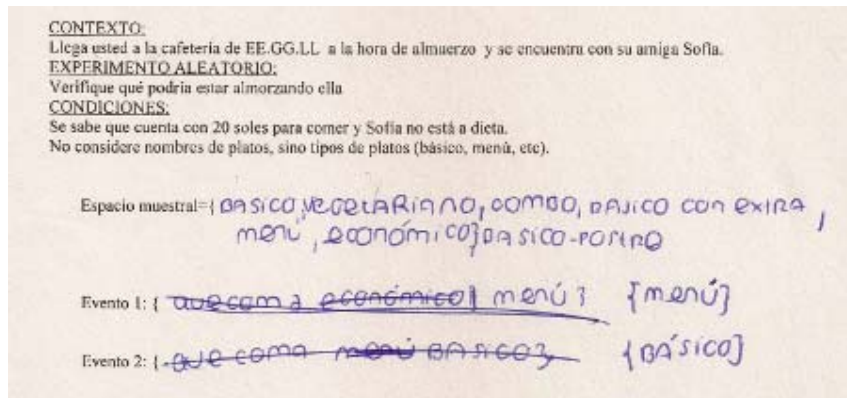 CONTEXTO:
Llega usted a la cafeteria de EE.GG.LL a la hora de almuerzo y se encuentra con su amiga Sofia.
EXPERIMENTO ALEATORIO:
Verifique qué podría estar almorzando ella
CONDICIONES:
Se sabe que cuenta con 20 soles para comer y Sofia no está a dieta.
No considere nombres de platos, sino tipos de platos (básico, menú, etc).
Espacio muestral={ BASICO, VEGETARIANO, COMBO, BASICO CON EXTRA,
menú, económico} BASICO-POSTRE
Evento 1: { QUE COMA económico} menú} {menú}
Evento 2: { QUE COMA menú BASICO}, {BÁSICO}